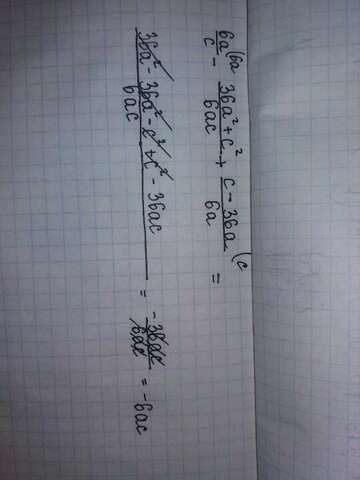 6a/c (6a - (36a² + c²)/6ac + (c - 36a)/6a (c =
(36a² - 36a² - c² + c² - 36ac)/6ac = - 36ac/6ac = - 6ac